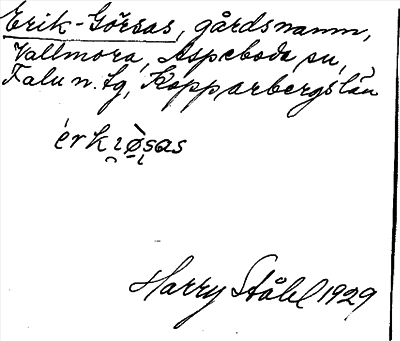 Erik-Görsas, gårdsnamn,
Vallmora, Aspeboda sn,
Falu n. tg, Kopparbergs län
Harry Ståhl 1929